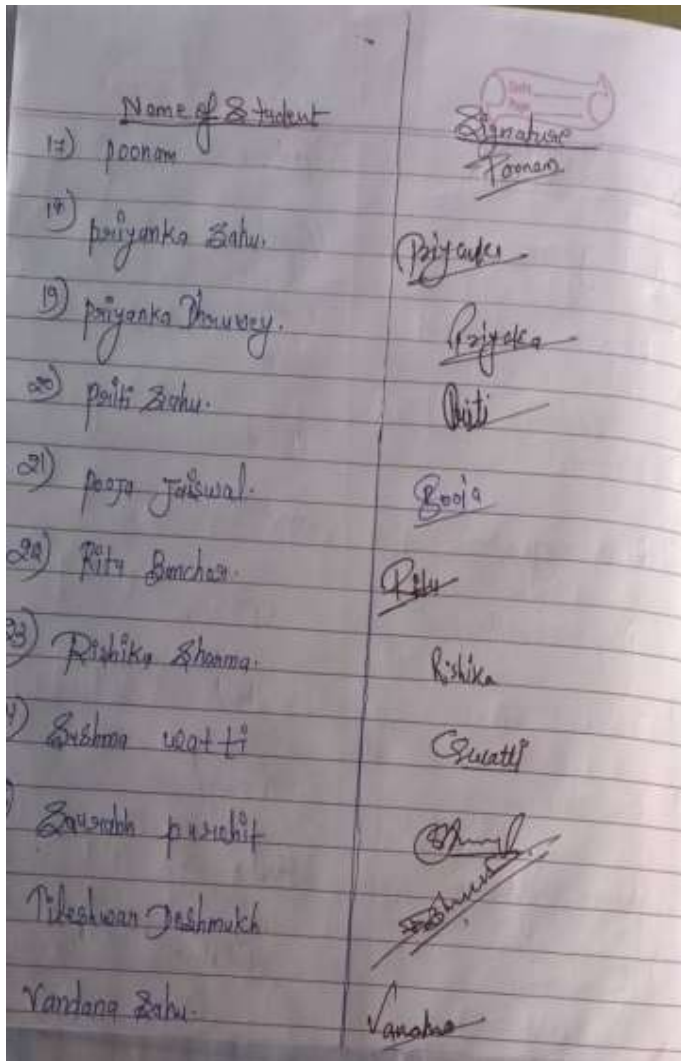 Date
Page
Name of Student Signature
17) poonam Poonam
18) priyanka Sahu. Priyanka
19) priyanka Dhruwey. Priyaka
20) priti Sahu. Priti
21) pooja Jaiswal. Pooja
22) Ritu Banchar. Ritu
23) Rishika Sharma. Rishika
4) Sushma watti Swatti
Saurabh purohit
Tileshwar Deshmukh
Vandana Sahu. Vandana